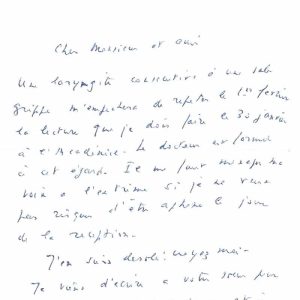 Cher Monsieur et ami
Une laryngite consécutive à une sale
grippe m'empêchera de répéter le 1er février
la lecture que je dois faire le 30 janvier
à l'Académie. Le docteur est formel
à cet égard. Il me faut ménager ma
voix à l'extrême si je ne veux
pas risquer d'être aphone le jour
de la réception.
J'en suis désolé : croyez moi.
Je viens d'écrire à votre sœur pour